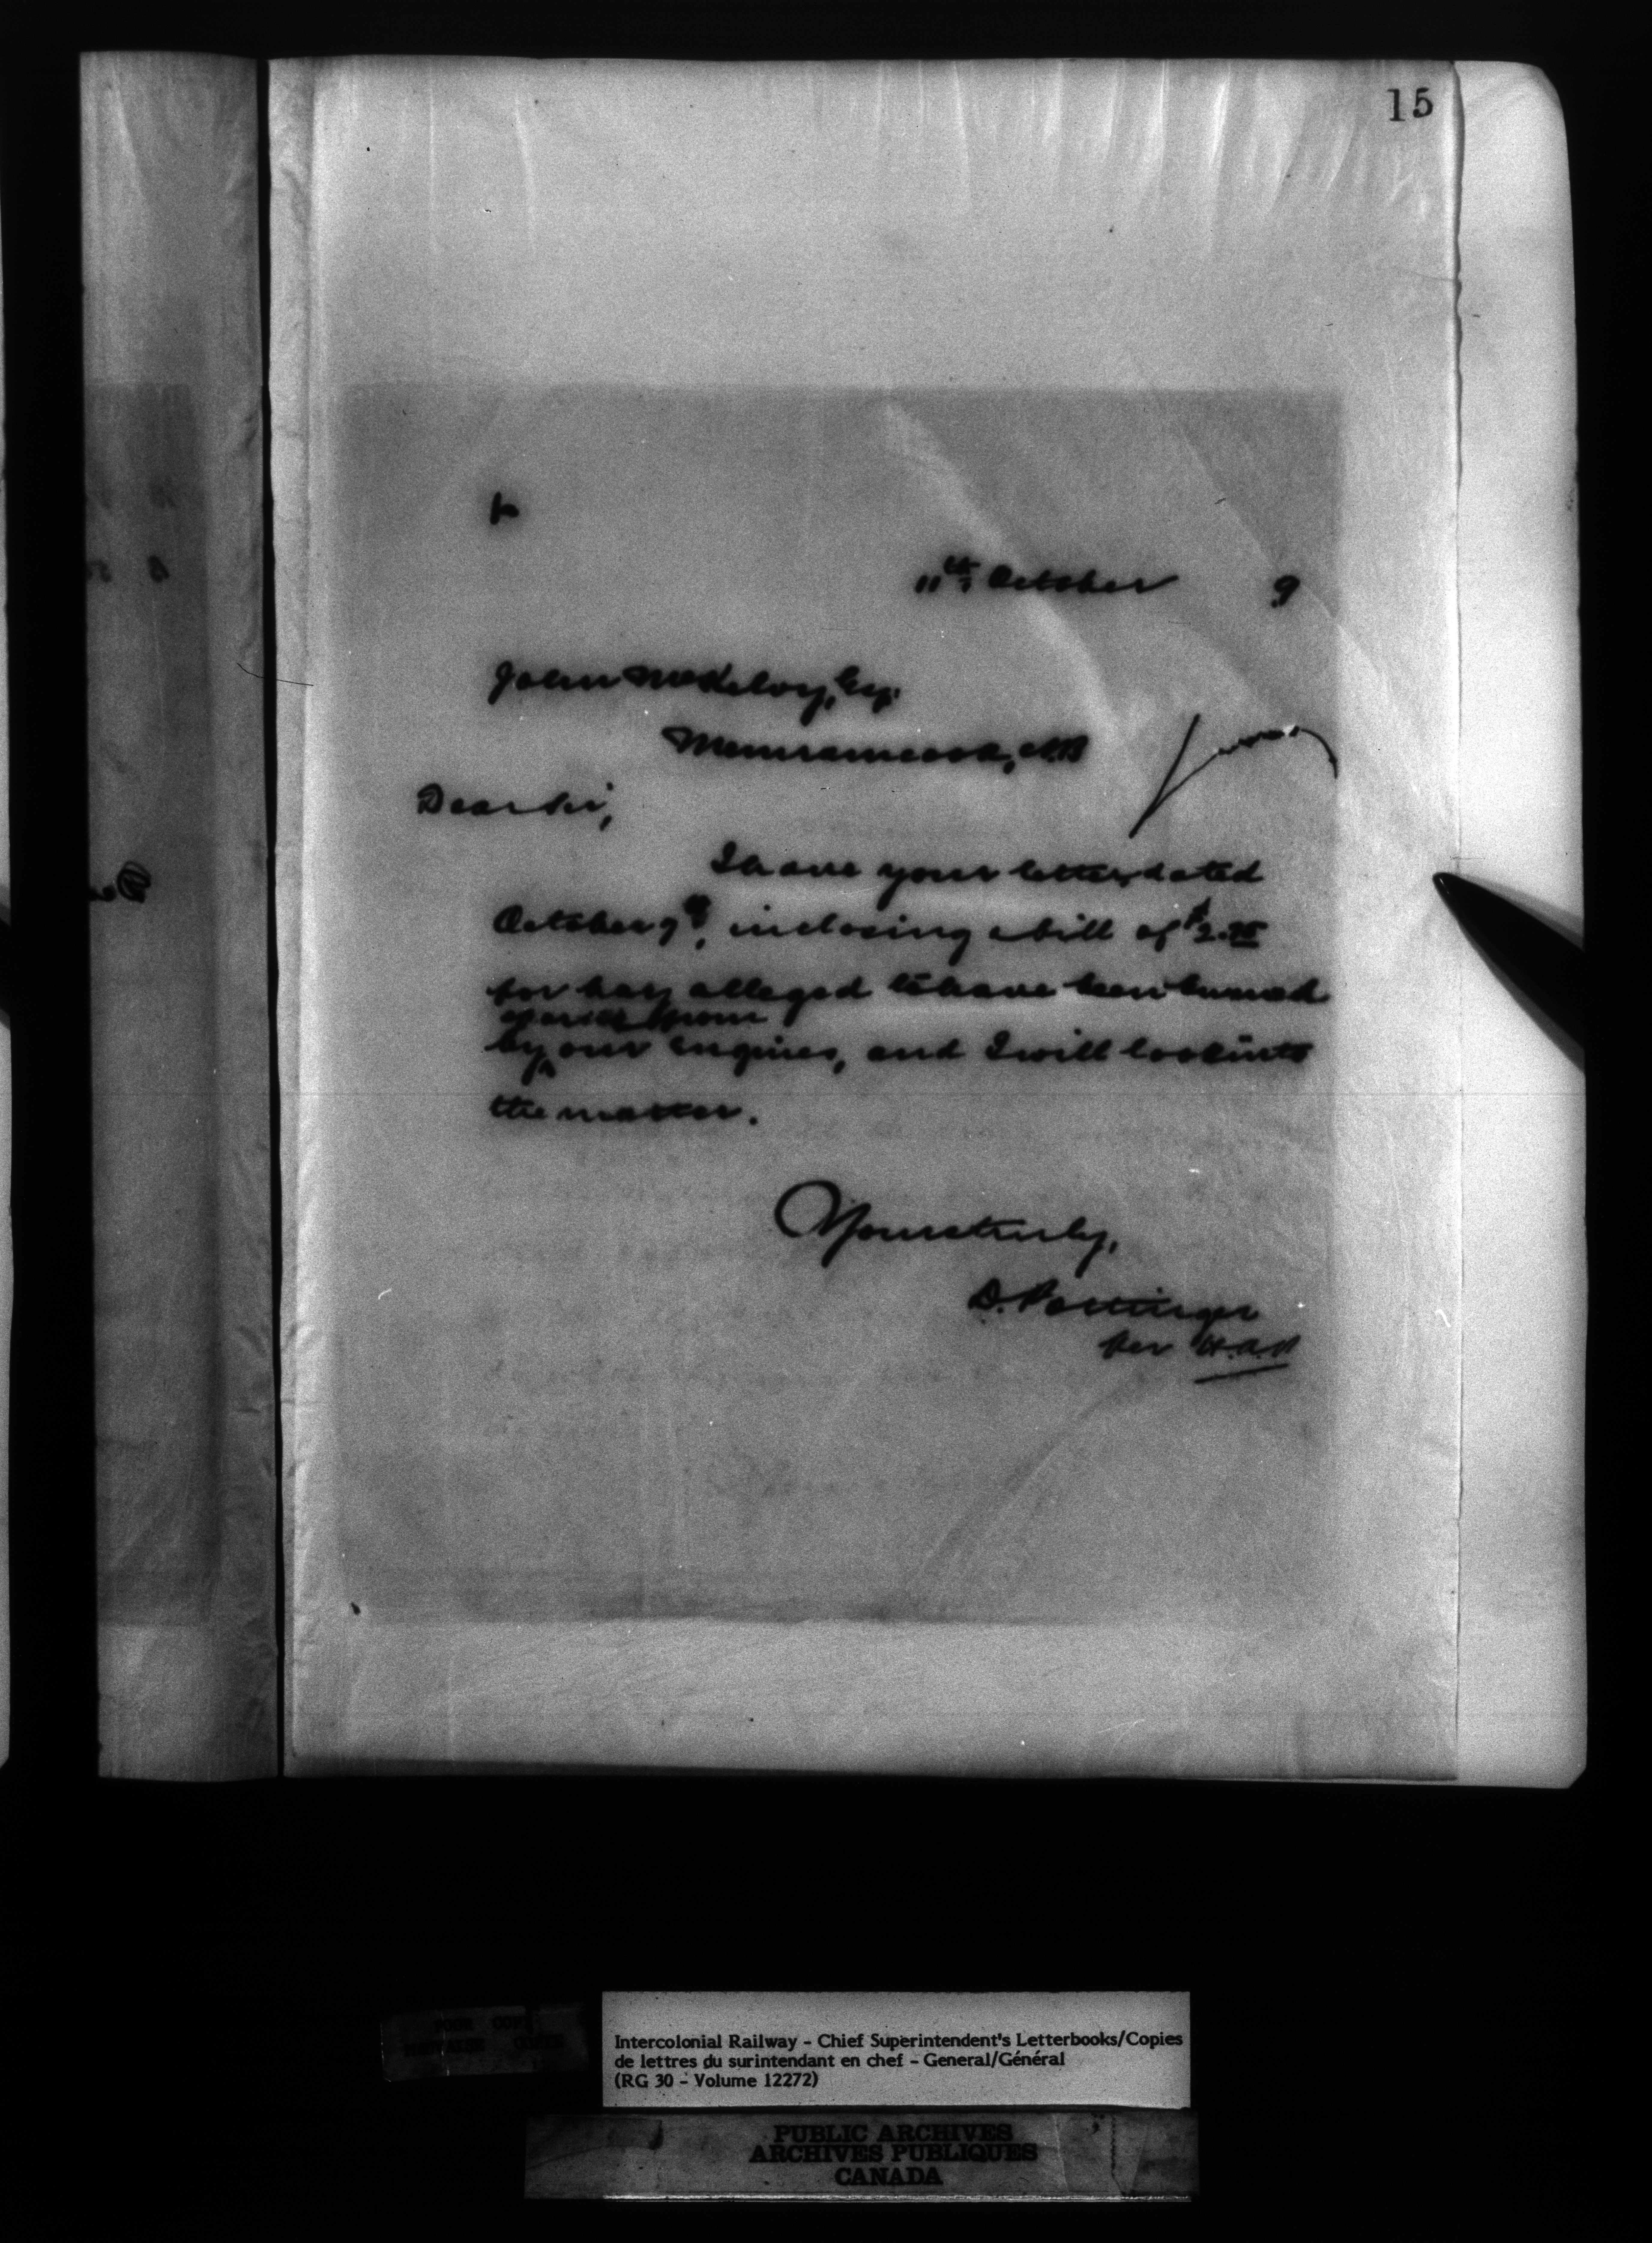 15
11th October 9
John McKelvy, Esq.
Memramcook, N.B
Dear Sir,
I have your letter, dated
October 9th, inclosing a bill of $2.75
for hay alleged to have been burned
sparks from
by our engines, and I will look into
the matter.
Yours truly,
D. Pottinger
per H.A.P
POOR COPY
MAUVAISE COPIE
Intercolonial Railway - Chief Superintendent's Letterbooks/Copies
de lettres du surintendant en chef - General/Général
(RG 30 - Volume 12272)
PUBLIC ARCHIVES
ARCHIVES PUBLIQUES
CANADA